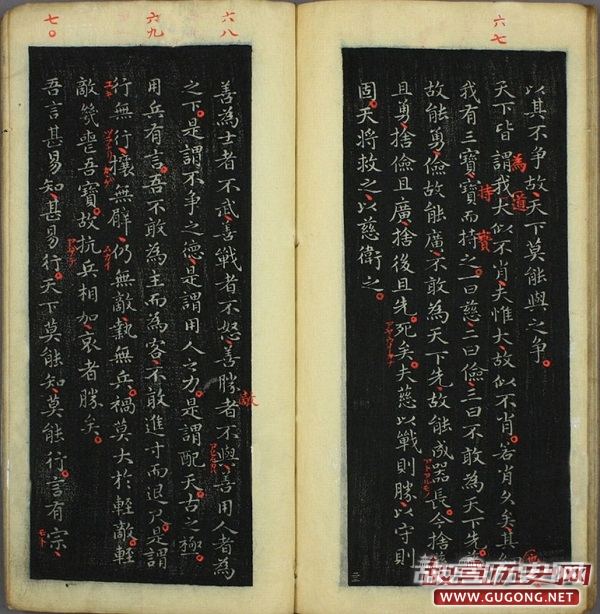 六七
以其不争故天下莫能與之争
天下皆謂我大似不肖夫惟大故似不肖若肖久矣其
為道
我有三寶寶而持之一曰慈二曰儉三曰不敢為天下先
持寶
故能勇儉故能廣不敢為天下先故能成器長今捨
且勇捨儉且廣捨後且先死矣夫慈以戰則勝以守則
固天將救之以慈衛之
六八
善為士者不武善戰者不怒善勝者不與善用人者為
敵
之下是謂不争之德是謂用人之力是謂配天古之極
六九
用兵有言吾不敢為主而為客不敢進寸而退尺是謂
行無行攘無臂仍無敵執無兵禍莫大於輕敵輕
敵幾喪吾寶故抗兵相加哀者勝矣
七〇
吾言甚易知甚易行天下莫能知莫能行言有宗
モト
故宫历史网
WWW.GUGONG.NET